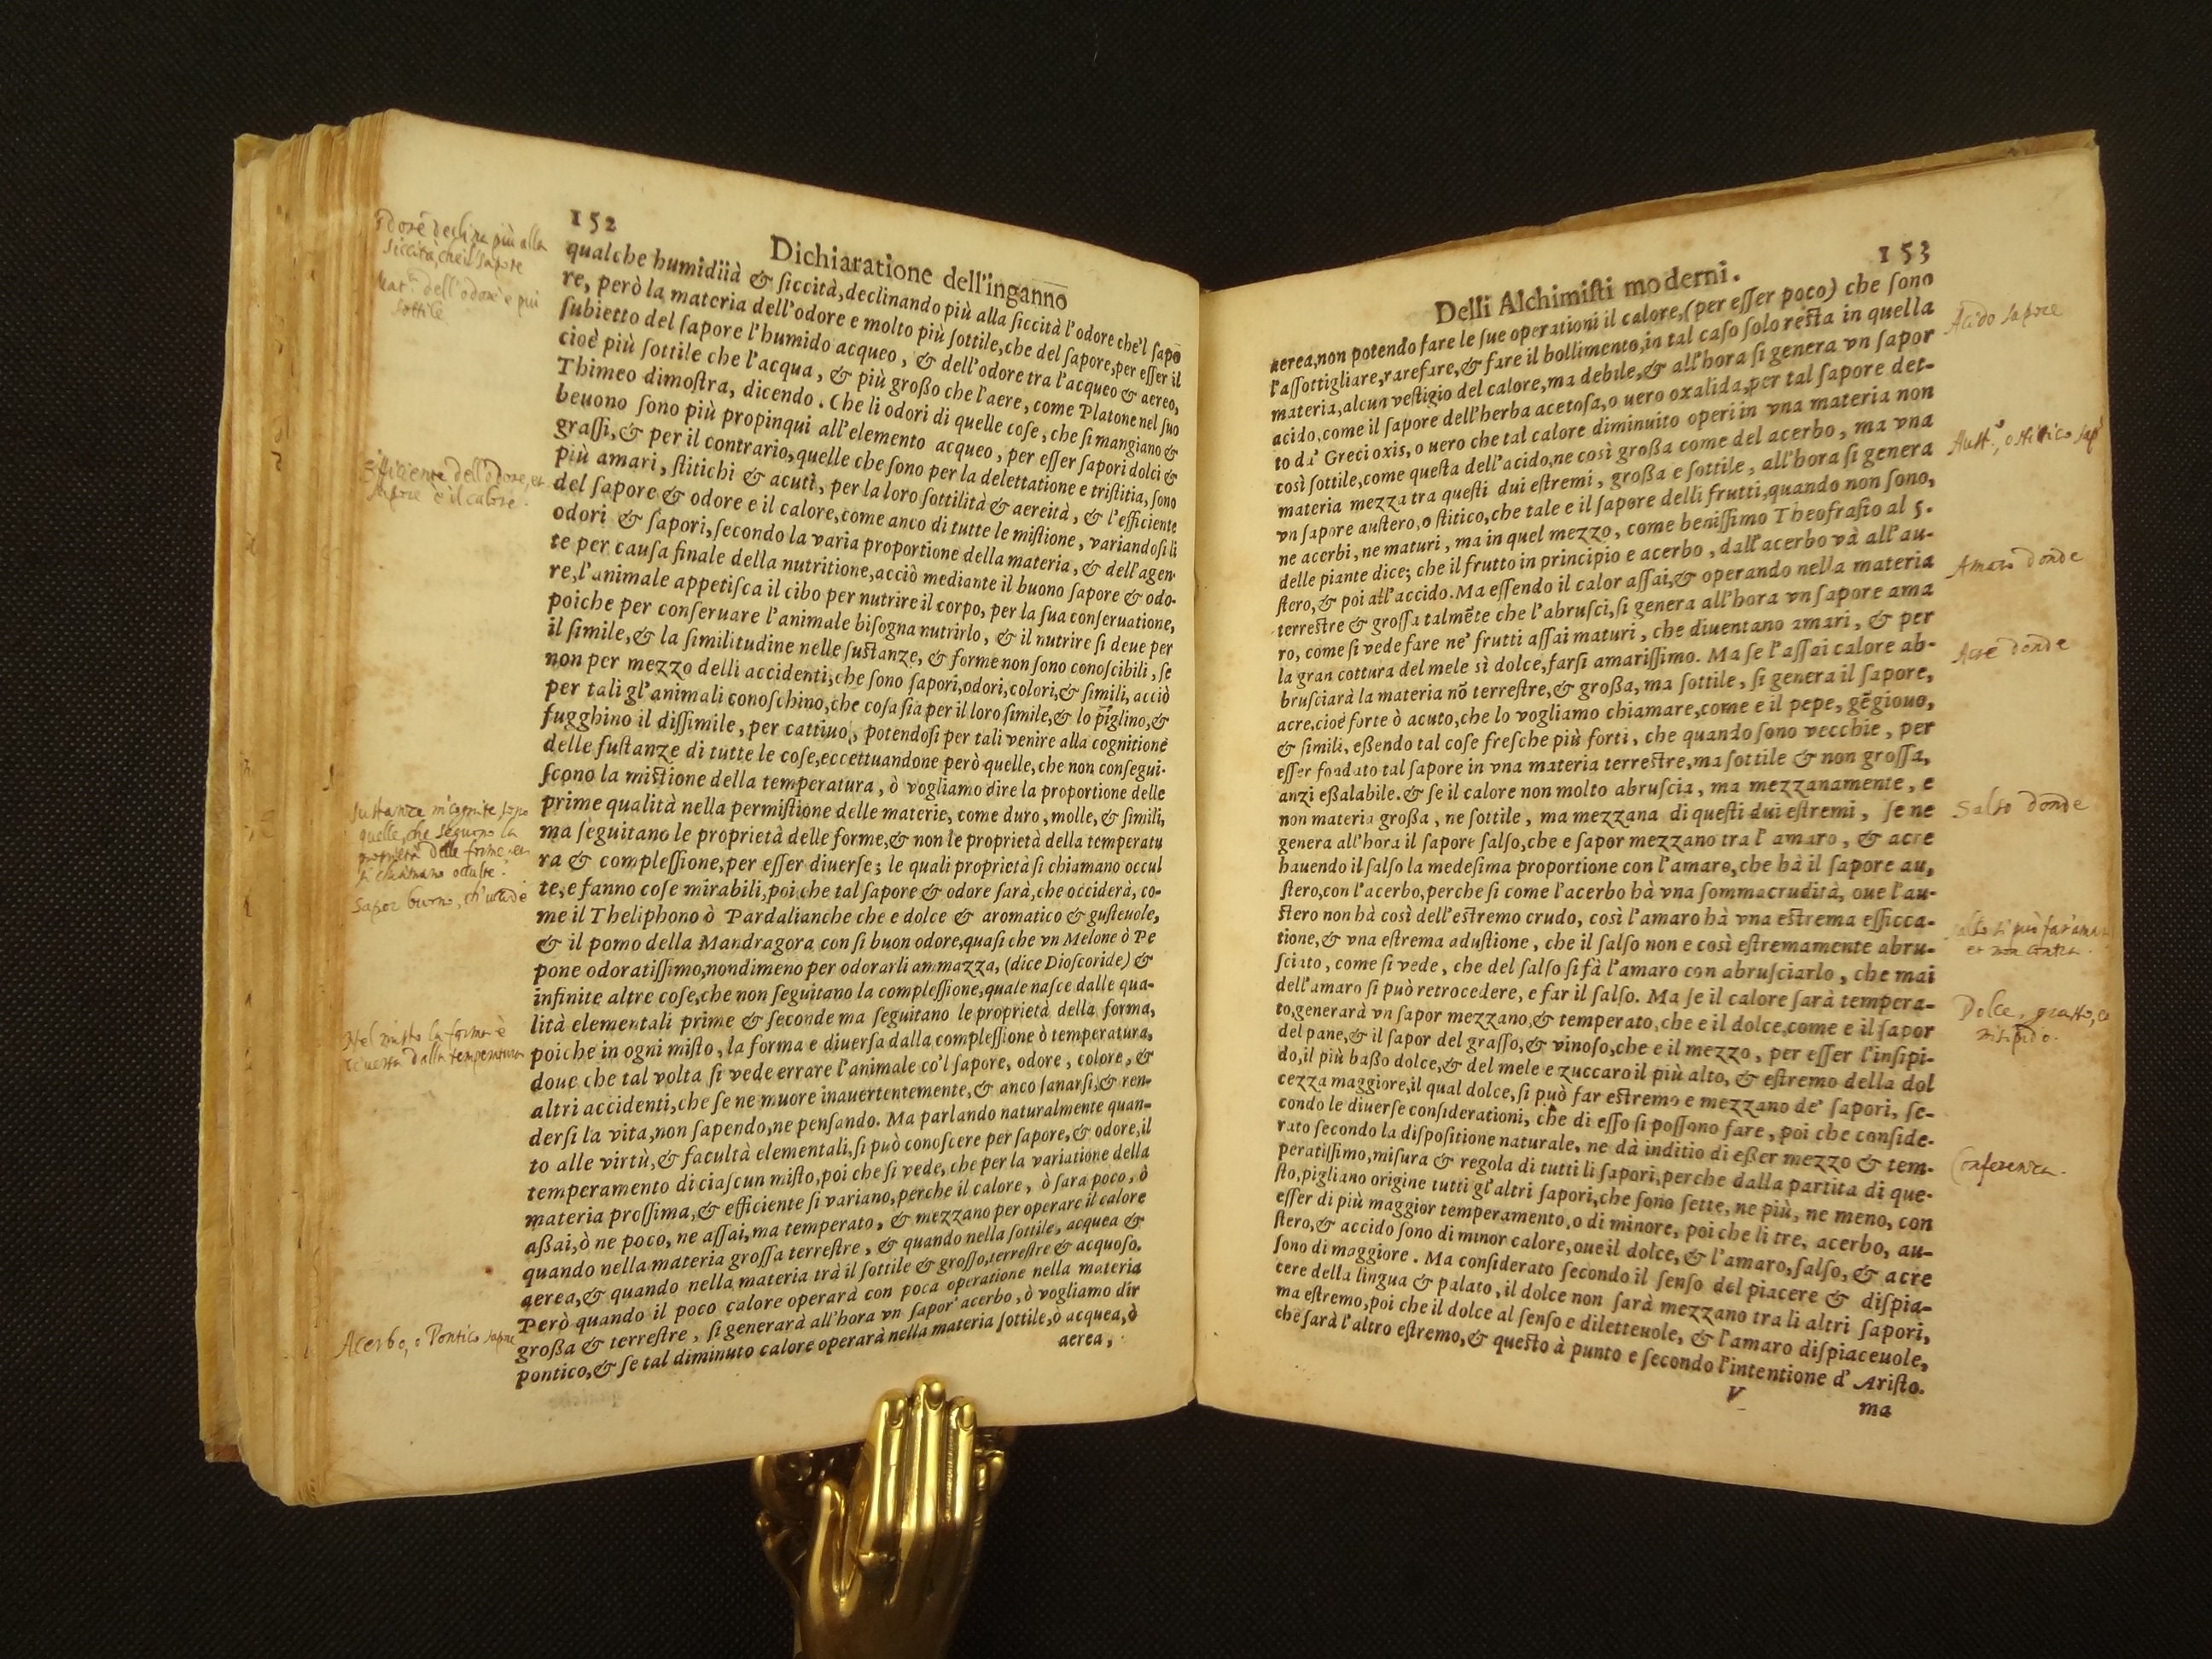 152
Dichiaratione dell'inganno
qualche humidiià & ſiccità, declinando più alla ſiccità l'odore che'l ſapo
re, però la materia dell'odore e molto più ſottile, che del ſapore, per eſſer il
ſubietto del ſapore l'humido acqueo, & dell'odore tra l'acqueo & aereo,
cioè più ſottile che l'acqua, & più groſſo che l'aere, come Platone nel ſuo
Thimeo dimoſtra, dicendo. Che li odori di quelle coſe, che ſi mangiano &
beuono ſono più propinqui all'elemento acqueo, per eſſer ſapori dolci &
graſſi, & per il contrario, quelle che ſono per la delettatione e triſtitia, ſono
più amari, ſtitichi & acuti, per la loro ſottilità & aereità, & l'efficiente
del ſapore & odore e il calore, come anco di tutte le miſtione, variandoſi li
odori & ſapori, ſecondo la varia proportione della materia, & dell'agen
te per cauſa finale della nutritione, acciò mediante il buono ſapore & odo-
re, l'animale appetiſca il cibo per nutrire il corpo, per la ſua conſeruatione,
poiche per conſeruare l'animale biſogna nutrirlo, & il nutrire ſi deue per
il ſimile, & la ſimilitudine nelle ſuſtanze, & forme non ſono conoſcibili, ſe
non per mezzo delli accidenti, che ſono ſapori, odori, colori, & ſimili, acciò
per tali gl'animali conoſchino, che coſa ſia per il loro ſimile, & lo piglino, &
fugghino il diſſimile, per cattiuo, potendoſi per tali venire alla cognitione
delle ſuſtanze di tutte le coſe, eccettuandone però quelle, che non conſegui-
ſcono la miſtione della temperatura, ò vogliamo dire la proportione delle
prime qualità nella permiſtione delle materie, come duro, molle, & ſimili,
ma ſeguitano le proprietà delle forme, & non le proprietà della temperatu
ra & compleſſione, per eſſer diuerſe; le quali proprietà ſi chiamano occul
te, e fanno coſe mirabili, poi che tal ſapore & odore ſarà, che occiderà, co-
me il Theliphono ò Pardalianche che e dolce & aromatico & guſteuole,
& il pomo della Mandragora con ſi buon odore, quaſi che vn Melone ò Pe
pone odoratiſſimo, nondimeno per odorarli ammazza, (dice Dioſcoride) &
infinite altre coſe, che non ſeguitano la compleſſione, quale naſce dalle qua-
lità elementali prime & ſeconde ma ſeguitano le proprietà della forma,
poiche in ogni miſto, la forma e diuerſa dalla compleſſione ò temperatura,
doue che tal volta ſi vede errare l'animale co'l ſapore, odore, colore, &
altri accidenti, che ſe ne muore inauertentemente, & anco ſanarſi, & ren-
derſi la vita, non ſapendo, ne penſando. Ma parlando naturalmente quan-
to alle virtù, & facultà elementali, ſi può conoſcere per ſapore, & odore, il
temperamento di ciaſcun miſto, poi che ſi vede, che per la variatione della
materia proſſima, & efficiente ſi variano, perche il calore, ò ſara poco, ò
aſſai, ò ne poco, ne aſſai, ma temperato, & mezzano per operare il calore
quando nella materia groſſa terreſtre, & quando nella ſottile, acquea &
aerea, & quando nella materia trà il ſottile & groſſo, terreſtre & acquoſo.
Però quando il poco calore operarà con poca operatione nella materia
groſſa & terreſtre, ſi generarà all'hora vn ſapor acerbo, ò vogliamo dir
pontico, & ſe tal diminuto calore operarà nella materia ſottile, ò acquea, ò
aerea,
odore declina più alla
siccità, che il sapore
Mat.a dell'odore è più
sottile
Efficiente dell'odore, et
sapore è il calore.
sustanze incognite sono
quelle, che seguono la
proprietà delle forme, et
si chiamano occulte.
Sapor buono, ch'uccide
Nel misto la forma è
diuersa dalla temperatura
Acerbo, o Pontico sapore
153
Delli Alchimiſti moderni.
aerea, non potendo fare le ſue operationi il calore, (per eſſer poco) che ſono
l'aſſottigliare, rarefare, & fare il bollimento, in tal caſo ſolo reſta in quella
materia, alcun veſtigio del calore, ma debile, & all'hora ſi genera vn ſapor
acido, come il ſapore dell'herba acetoſa, o uero oxalida, per tal ſapore det-
to da' Greci oxis, o uero che tal calore diminuito operi in vna materia non
così ſottile, come queſta dell'acido, ne così groſſa come del acerbo, ma vna
materia mezza tra queſti dui eſtremi, groſſa e ſottile, all'hora ſi genera
vn ſapore auſtero, o ſtitico, che tale e il ſapore delli frutti, quando non ſono,
ne acerbi, ne maturi, ma in quel mezzo, come beniſſimo Theofraſto al 5.
delle piante dice; che il frutto in principio e acerbo, dall'acerbo và all'au-
ſtero, & poi all'accido. Ma eſſendo il calor aſſai, & operando nella materia
terreſtre & groſſa talmẽte che l'abruſci, ſi genera all'hora vn ſapore ama
ro, come ſi vede fare ne' frutti aſſai maturi, che diuentano amari, & per
la gran cottura del mele sì dolce, farſi amariſſimo. Ma ſe l'aſſai calore ab-
bruſciarà la materia nõ terreſtre, & groſſa, ma ſottile, ſi genera il ſapore,
acre, cioè forte ò acuto, che lo vogliamo chiamare, come e il pepe, gẽgiouo,
& ſimili, eſſendo tal coſe freſche più forti, che quando ſono vecchie, per
eſſer fondato tal ſapore in vna materia terreſtre, ma ſottile & non groſſa,
anzi eſſalabile. & ſe il calore non molto abruſcia, ma mezzanamente, e
non materia groſſa, ne ſottile, ma mezzana di queſti dui eſtremi, ſe ne
genera all'hora il ſapore ſalſo, che e ſapor mezzano tra l'amaro, & acre
hauendo il ſalſo la medeſima proportione con l'amaro, che hà il ſapore au,
ſtero, con l'acerbo, perche ſi come l'acerbo hà vna ſomma crudità, oue l'au-
ſtero non hà così dell'eſtremo crudo, così l'amaro hà vna eſtrema eſſicca-
tione, & vna eſtrema aduſtione, che il ſalſo non e così eſtremamente abru-
ſciato, come ſi vede, che del ſalſo ſi fà l'amaro con abruſciarlo, che mai
dell'amaro ſi può retrocedere, e far il ſalſo. Ma ſe il calore ſarà tempera-
to, generarà vn ſapor mezzano, & temperato, che e il dolce, come e il ſapor
del pane, & il ſapor del graſſo, & vinoſo, che e il mezzo, per eſſer l'inſipi-
do, il più baſſo dolce, & del mele e zuccaro il più alto, & eſtremo della dol
cezza maggiore, il qual dolce, ſi può far eſtremo e mezzano de' ſapori, ſe-
condo le diuerſe conſiderationi, che di eſſo ſi poſſono fare, poi che conſide-
rato ſecondo la diſpoſitione naturale, ne dà inditio di eſſer mezzo & tem-
peratiſſimo, miſura & regola di tutti li ſapori, perche dalla partita di que-
ſto, pigliano origine tutti gl'altri ſapori, che ſono ſette, ne più, ne meno, con
eſſer di più maggior temperamento, o di minore, poi che li tre, acerbo, au-
ſtero, & accido ſono di minor calore, oue il dolce, & l'amaro, ſalſo, & acre
ſono di maggiore. Ma conſiderato ſecondo il ſenſo del piacere & diſpia-
cere della lingua & palato, il dolce non ſarà mezzano tra li altri ſapori,
ma eſtremo, poi che il dolce al ſenſo e diletteuole, & l'amaro diſpiaceuole,
che ſarà l'altro eſtremo, & queſto à punto e ſecondo l'intentione d'Ariſto.
V
ma
Acido sapore
Aust.o, o stitico sap.
Amaro donde
Acre donde
Salso donde
salso si può far amaro
et non contra.
Dolce, grasso, et
insipido.
Conferenza.